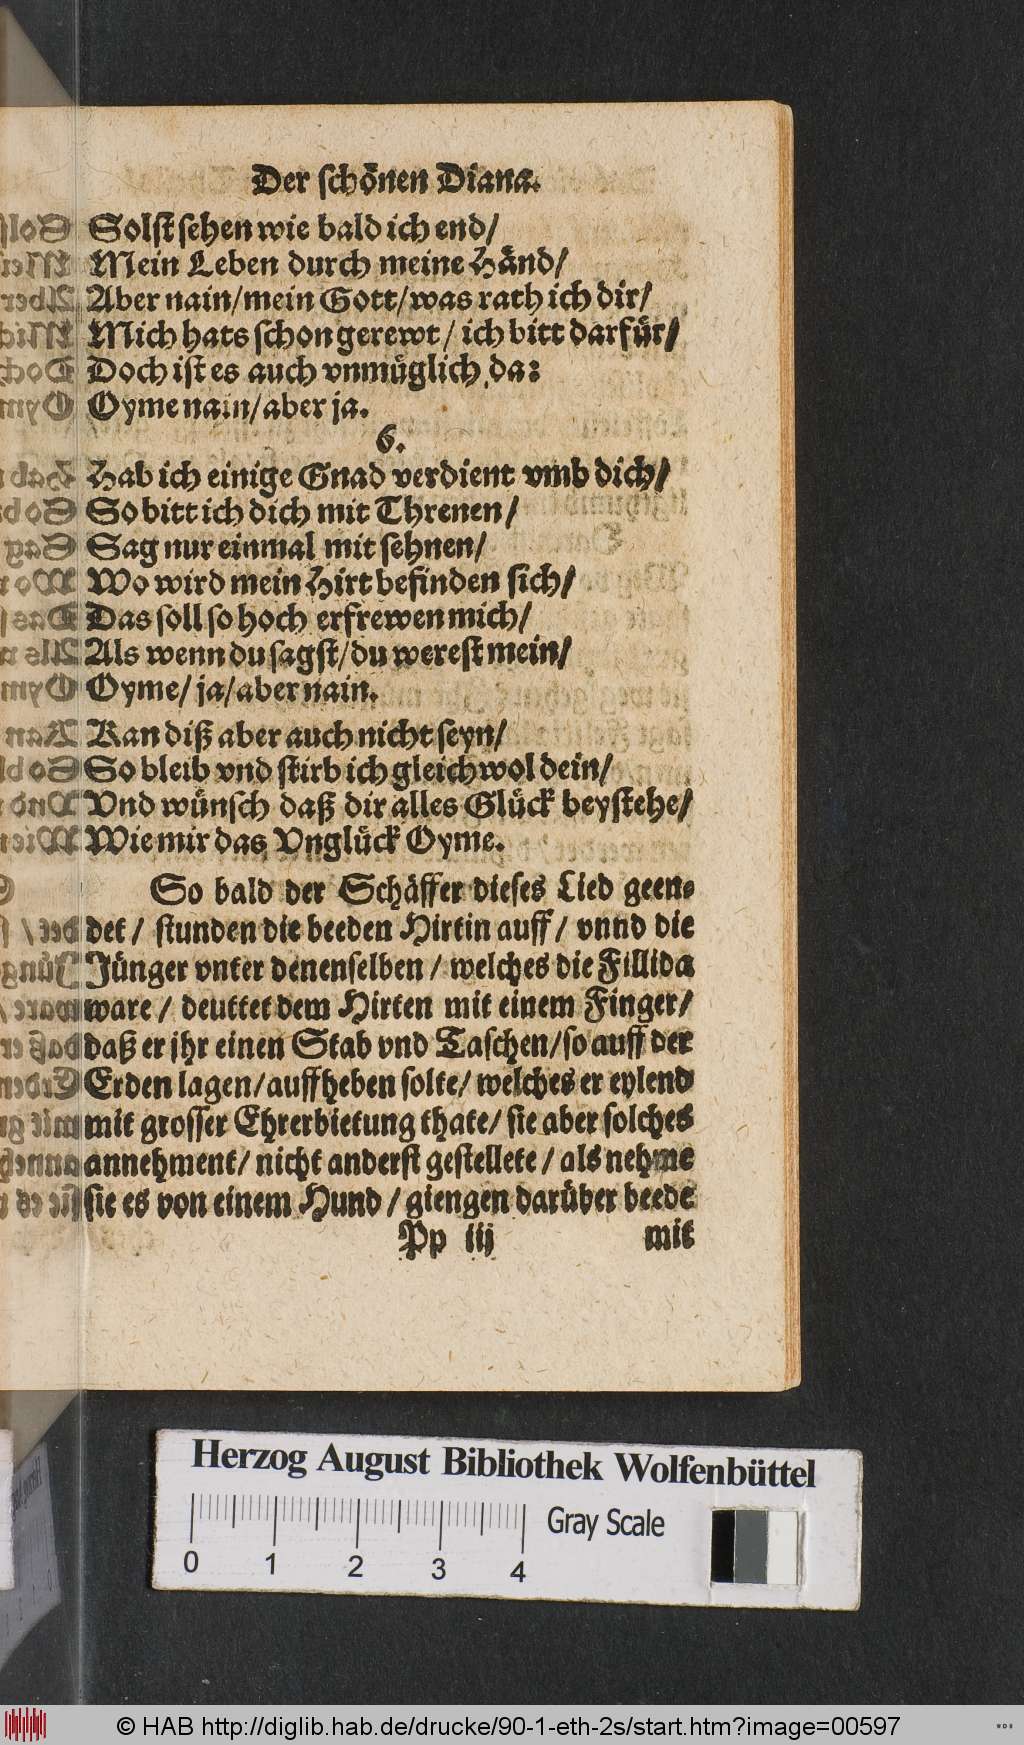 Der schönen Diana.
Solst sehen wie bald ich end/
Mein Leben durch meine Händ/
Aber nain/mein Gott/was rath ich dir/
Mich hats schon gerewt/ ich bitt darfür/
Doch ist es auch vnmüglich da:
Oyme nain/aber ja.
6.
Hab ich einige Gnad verdient vmb dich/
So bitt ich dich mit Threnen/
Sag nur einmal mit sehnen/
Wo wird mein Hirt befinden sich/
Das soll so hoch erfrewen mich/
Als wenn du sagst/du werest mein/
Oyme/ ja/aber nain.
Kan diß aber auch nicht seyn/
So bleib vnd stirb ich gleichwol dein/
Vnd wünsch daß dir alles Glück beystehe/
Wie mir das Vnglück Oyme.
So bald der Schäffer dieses Lied geen-
det/ stunden die beeden Hirtin auff/ vnnd die
Jünger vnter denenselben/ welches die Fillida
ware/ deuttet dem Hirten mit einem Finger/
daß er jhr einen Stab vnd Taschen/so auff der
Erden lagen/auffheben solte/ welches er eylend
mit grosser Ehrerbietung thate/ sie aber solches
annehment/ nicht anderst gestellete/ als nehme
sie es von einem Hund/ giengen darüber beede
Pp iij mit
Herzog August Bibliothek Wolfenbüttel
Gray Scale
0 1 2 3 4
© HAB http://diglib.hab.de/drucke/90-1-eth-2s/start.htm?image=00597